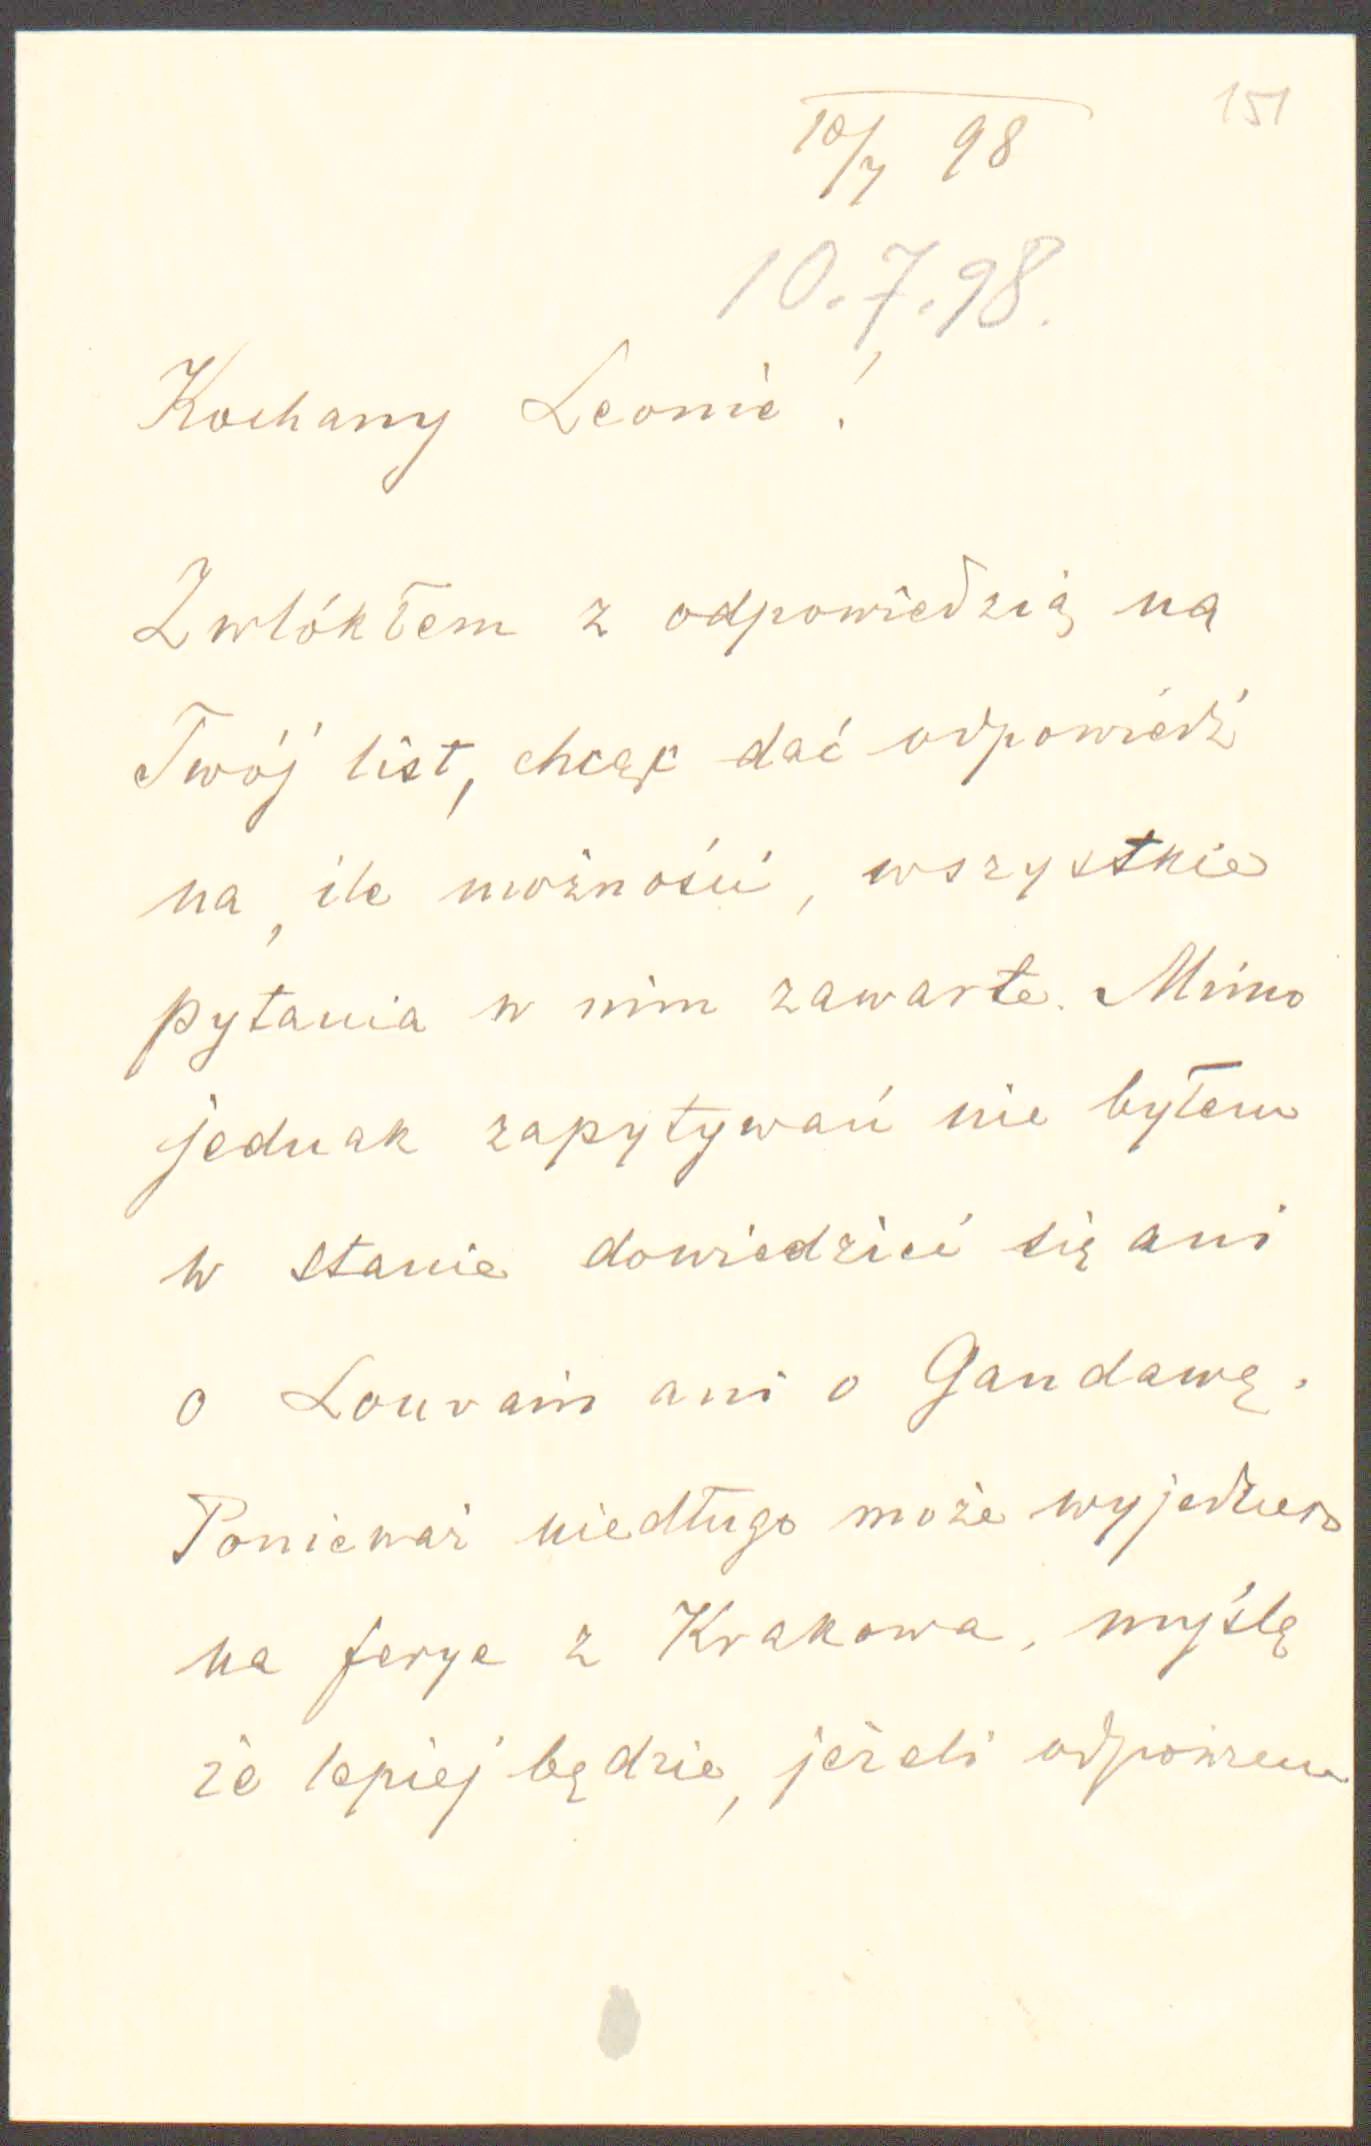 151
10/7 98
10.7.98.
Kochany Leonie!
Zwlókłem z odpowiedzią na
Twój list, chcąc dać odpowiedź
na, ile możności, wszystkie
pytania w nim zawarte. Mimo
jednak zapytywań nie byłem
w stanie dowiedzieć się ani
o Louvain ani o Gandawę.
Ponieważ niedługo może wyjedziesz
na ferye z Krakowa, myślę
że lepiej będzie, jeżeli odpowiem